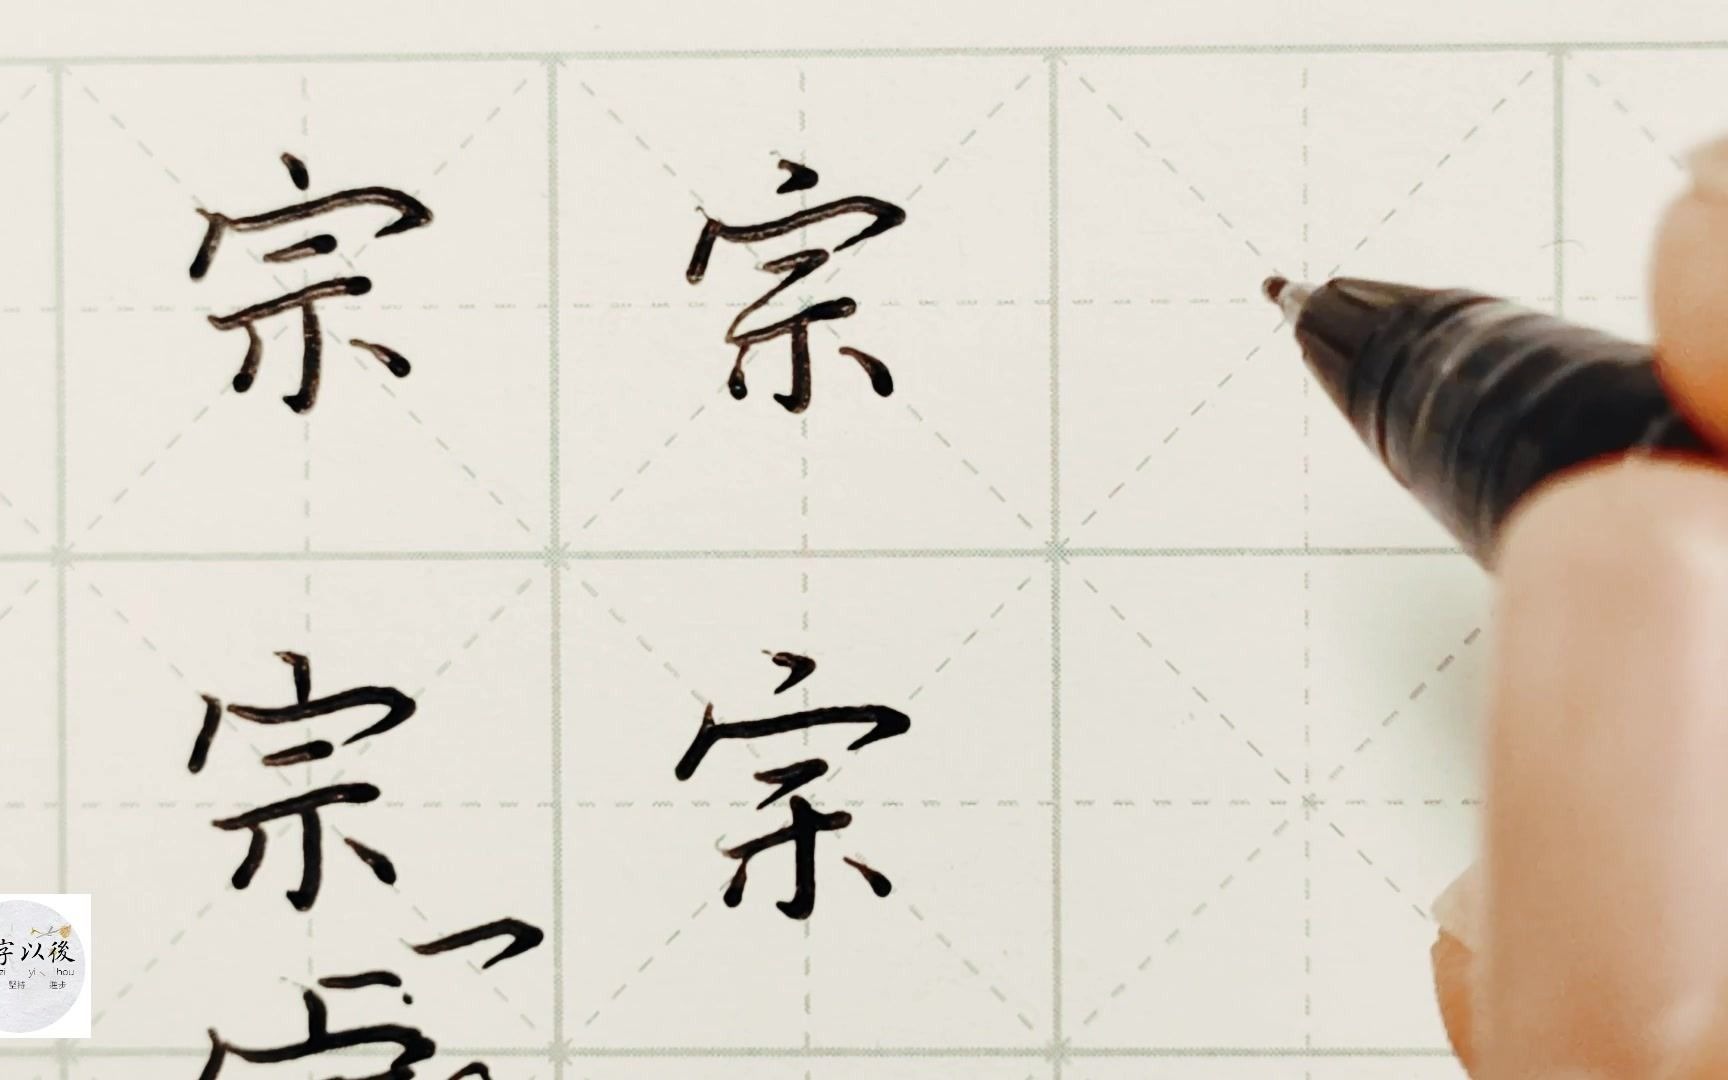 宗 宗
宗 宗
字以後
zi yi hou
堅持 進步